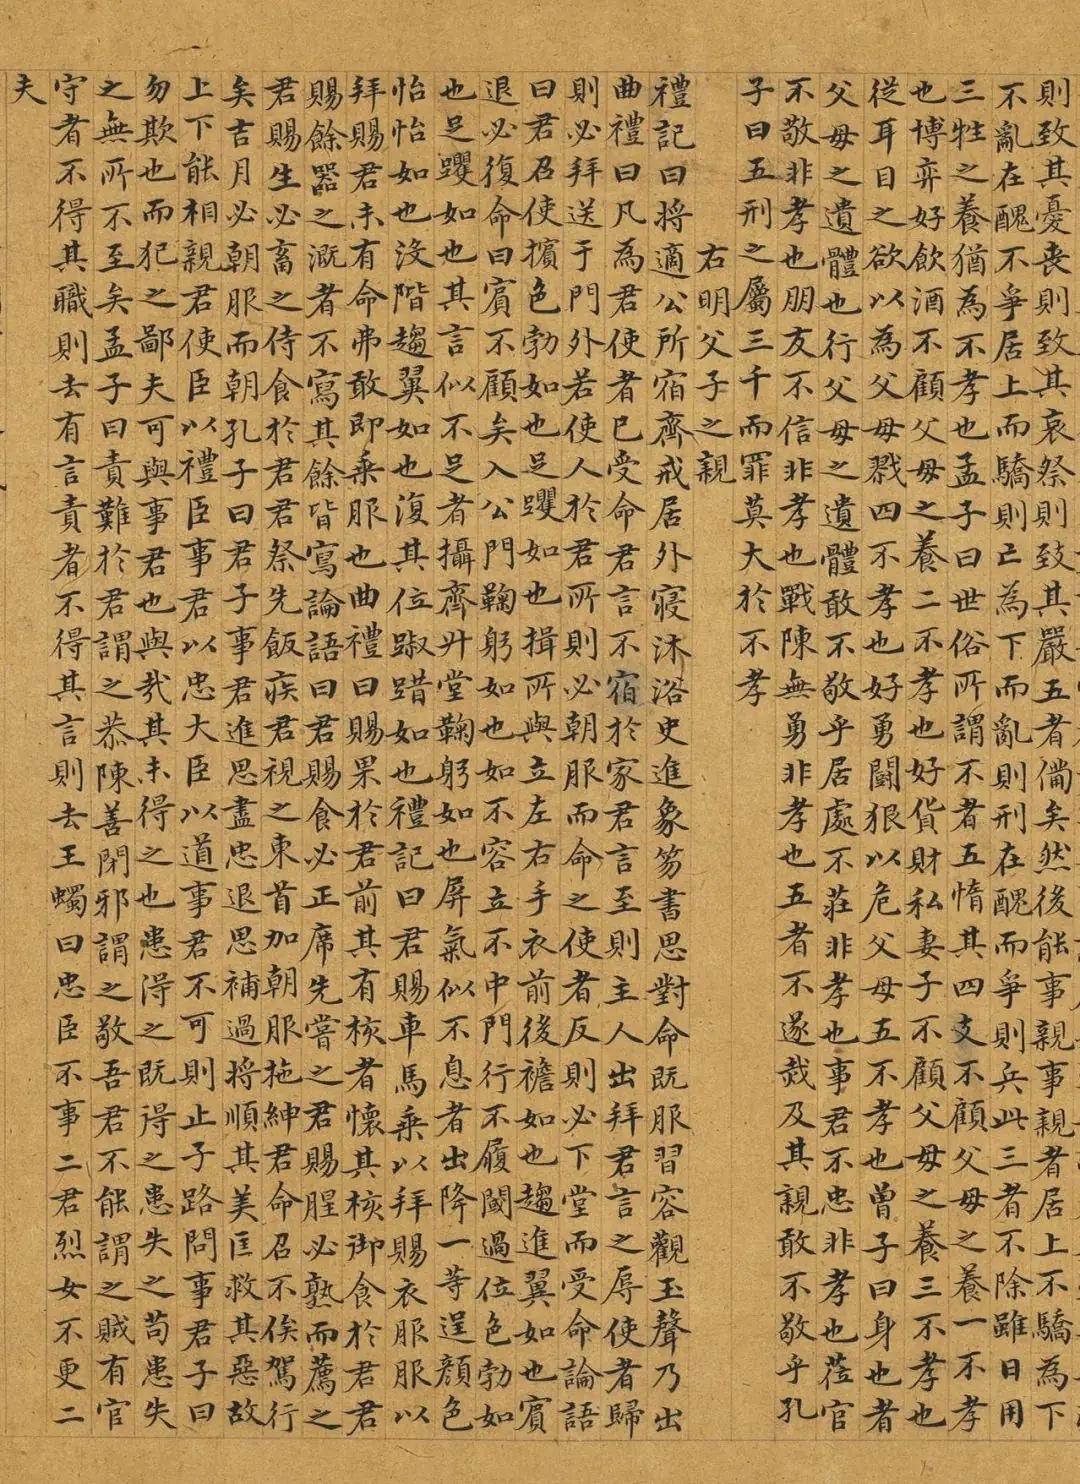 則致其憂喪則致其哀祭則致其嚴五者僃矣然後能事親事親者居上不驕為下
不亂在醜不爭居上而驕則亡為下而亂則刑在醜而爭則兵此三者不除雖日用
三牲之養猶為不孝也孟子曰世俗所謂不者五惰其四支不顧父母之養一不孝
也博弈好飲酒不顧父母之養二不孝也好貨財私妻子不顧父母之養三不孝也
從耳目之欲以為父母戮四不孝也好勇鬪狠以危父母五不孝也曾子曰身也者
父母之遺體也行父母之遺體敢不敬乎居處不莊非孝也事君不忠非孝也蒞官
不敬非孝也朋友不信非孝也戰陳無勇非孝也五者不遂烖及其親敢不敬乎孔
子曰五刑之屬三千而罪莫大於不孝
右明父子之親
禮記曰將適公所宿齊戒居外寢沐浴史進象笏書思對命既服習容觀玉聲乃出
曲禮曰凡為君使者已受命君言不宿於家君言至則主人出拜君言之辱使者歸
則必拜送于門外若使人於君所則必朝服而命之使者反則必下堂而受命論語
曰君召使擯色勃如也足躩如也揖所與立左右手衣前後襜如也趨進翼如也賓
退必復命曰賓不顧矣入公門鞠躬如也如不容立不中門行不履閾過位色勃如
也足躩如也其言似不足者攝齊升堂鞠躬如也屏氣似不息者出降一等逞顏色
怡怡如也沒階趨翼如也復其位踧踖如也禮記曰君賜車馬乘以拜賜衣服服以
拜賜君未有命弗敢即乘服也曲禮曰賜果於君前其有核者懷其核御食於君君
賜餘器之溉者不寫其餘皆寫論語曰君賜食必正席先嘗之君賜腥必熟而薦之
君賜生必畜之侍食於君君祭先飯疾君視之東首加朝服拖紳君命召不俟駕行
矣吉月必朝服而朝孔子曰君子事君進思盡忠退思補過將順其美匡救其惡故
上下能相親君使臣以禮臣事君以忠大臣以道事君不可則止子路問事君子曰
勿欺也而犯之鄙夫可與事君也與哉其未得之也患得之既得之患失之苟患失
之無所不至矣孟子曰責難於君謂之恭陳善閉邪謂之敬吾君不能謂之賊有官
守者不得其職則去有言責者不得其言則去王蠋曰忠臣不事二君烈女不更二
夫